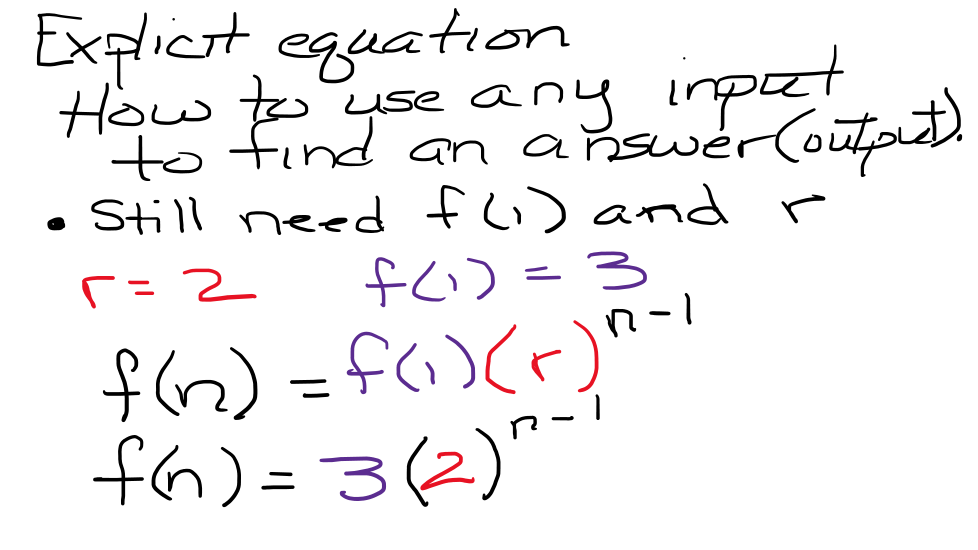 Explicit equation
How to use any input
to find an answer (output).
• Still need f(1) and r
r = 2 f(1) = 3
f(n) = f(1)(r)^{n-1}
f(n) = 3(2)^{n-1}